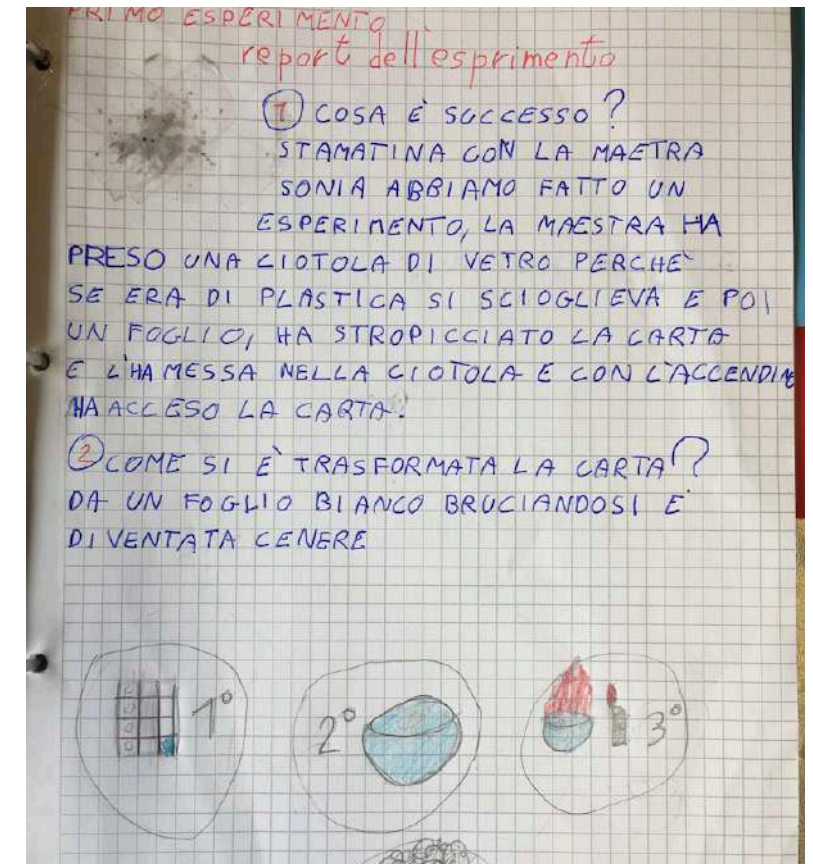 PRIMO ESPERIMENTO
report dell'esprimento
1 COSA È SUCCESSO?
STAMATINA CON LA MAETRA
SONIA ABBIAMO FATTO UN
ESPERIMENTO, LA MAESTRA HA
PRESO UNA CIOTOLA DI VETRO PERCHÈ
SE ERA DI PLASTICA SI SCIOGLIEVA E POI
UN FOGLIO, HA STROPICCIATO LA CARTA
E L'HA MESSA NELLA CIOTOLA E CON L'ACCENDINO
HA ACCESO LA CARTA.
2 COME SI È TRASFORMATA LA CARTA?
DA UN FOGLIO BIANCO BRUCIANDOSI È
DIVENTATA CENERE
1° 2° 3°